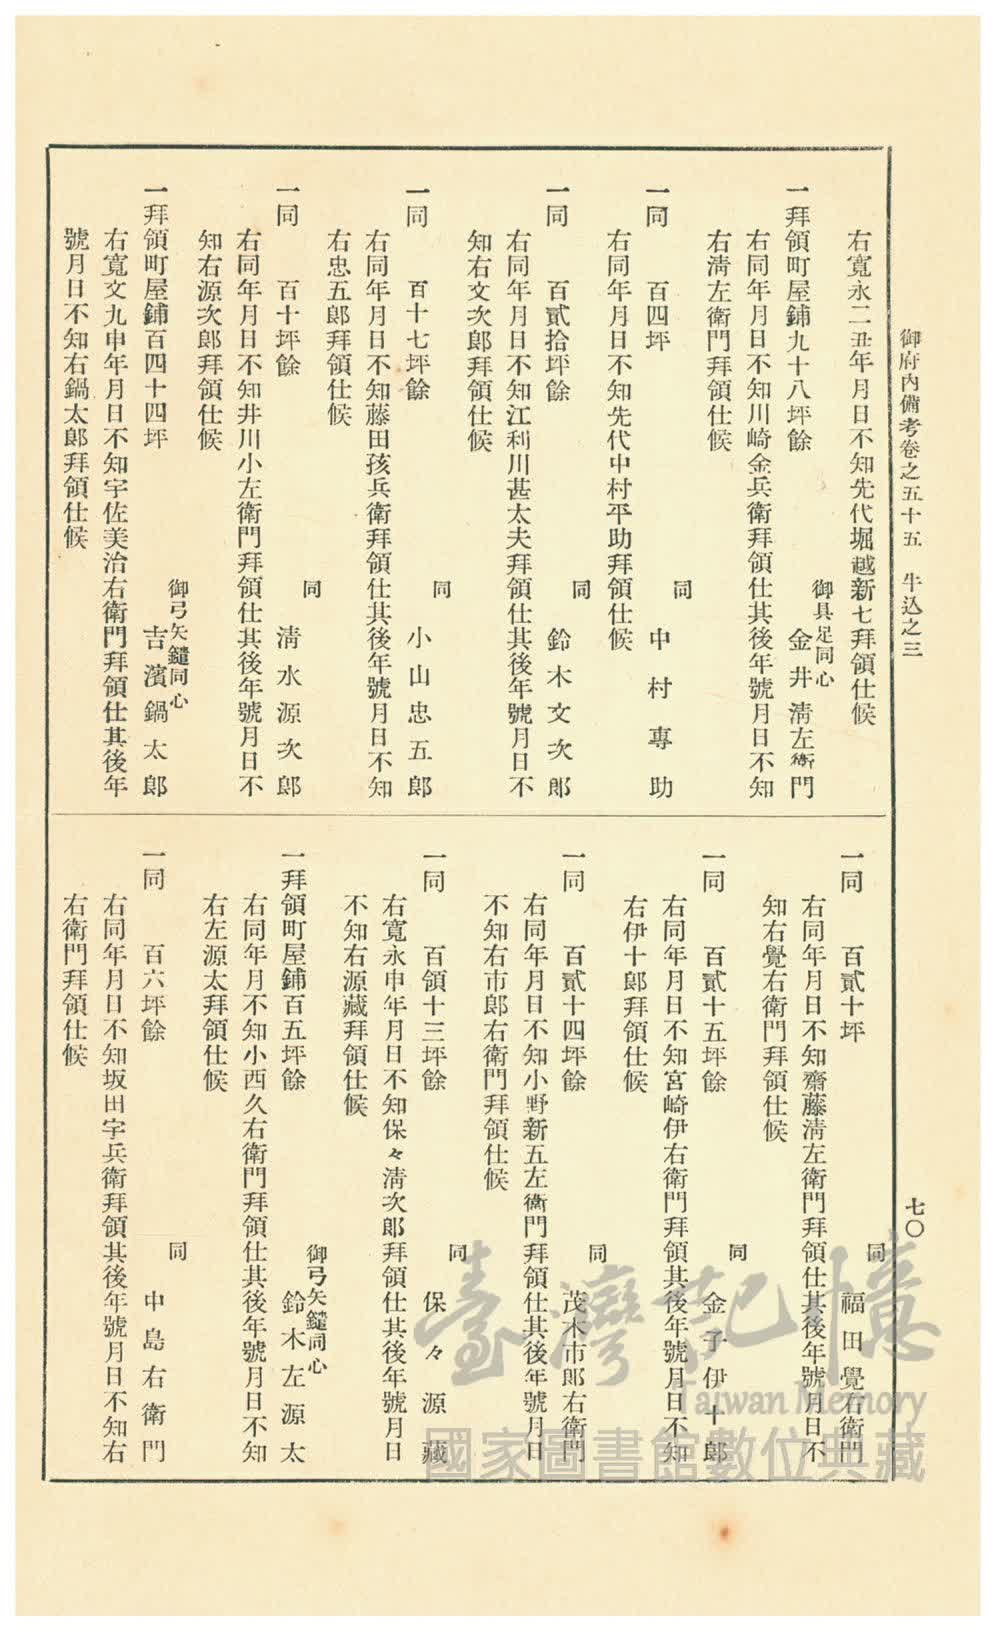 御府內備考卷之五十五　牛込之三
七〇
右寬永二丑年月日不知先代堀越新七拜領仕候
御具足同心
一拜領町屋鋪九十八坪餘　金井淸左衞門
右同年月日不知川崎金兵衞拜領仕其後年號月日不知
右淸左衞門拜領仕候
同
一同　百四坪　中村專助
右同年月日不知先代中村平助拜領仕候
同
一同　百貳拾坪餘　鈴木文次郞
右同年月日不知江利川甚太夫拜領仕其後年號月日不
知右文次郞拜領仕候
同
一同　百十七坪餘　小山忠五郞
右同年月日不知藤田孩兵衞拜領仕其後年號月日不知
右忠五郞拜領仕候
同
一同　百十坪餘　淸水源次郞
右同年月日不知井川小左衞門拜領仕其後年號月日不
知右源次郞拜領仕候
御弓矢鑓同心
一拜領町屋鋪百四十四坪　吉濱鍋太郞
右寬文九申年月日不知宇佐美治右衞門拜領仕其後年
號月日不知右鍋太郞拜領仕候
同
一同　百貳十坪　福田覺右衞門
右同年月日不知齋藤淸左衞門拜領仕其後年號月日不
知右覺右衞門拜領仕候
同
一同　百貳十五坪餘　金子伊十郞
右同年月日不知宮崎伊右衞門拜領其後年號月日不知
右伊十郞拜領仕候
同
一同　百貳十四坪餘　茂木市郞右衞門
右同年月日不知小野新五左衞門拜領仕其後年號月日
不知右市郞右衞門拜領仕候
同
一同　百領十三坪餘　保々源藏
右寬永申年月日不知保々淸次郞拜領仕其後年號月日
不知右源藏拜領仕候
御弓矢鑓同心
一拜領町屋鋪百五坪餘　鈴木左源太
右同年月不知小西久右衞門拜領仕其後年號月日不知
右左源太拜領仕候
同
一同　百六坪餘　中島右衞門
右同年月日不知坂田字兵衞拜領其後年號月日不知右
右衞門拜領仕候
臺灣記憶
Taiwan Memory
國家圖書館數位典藏